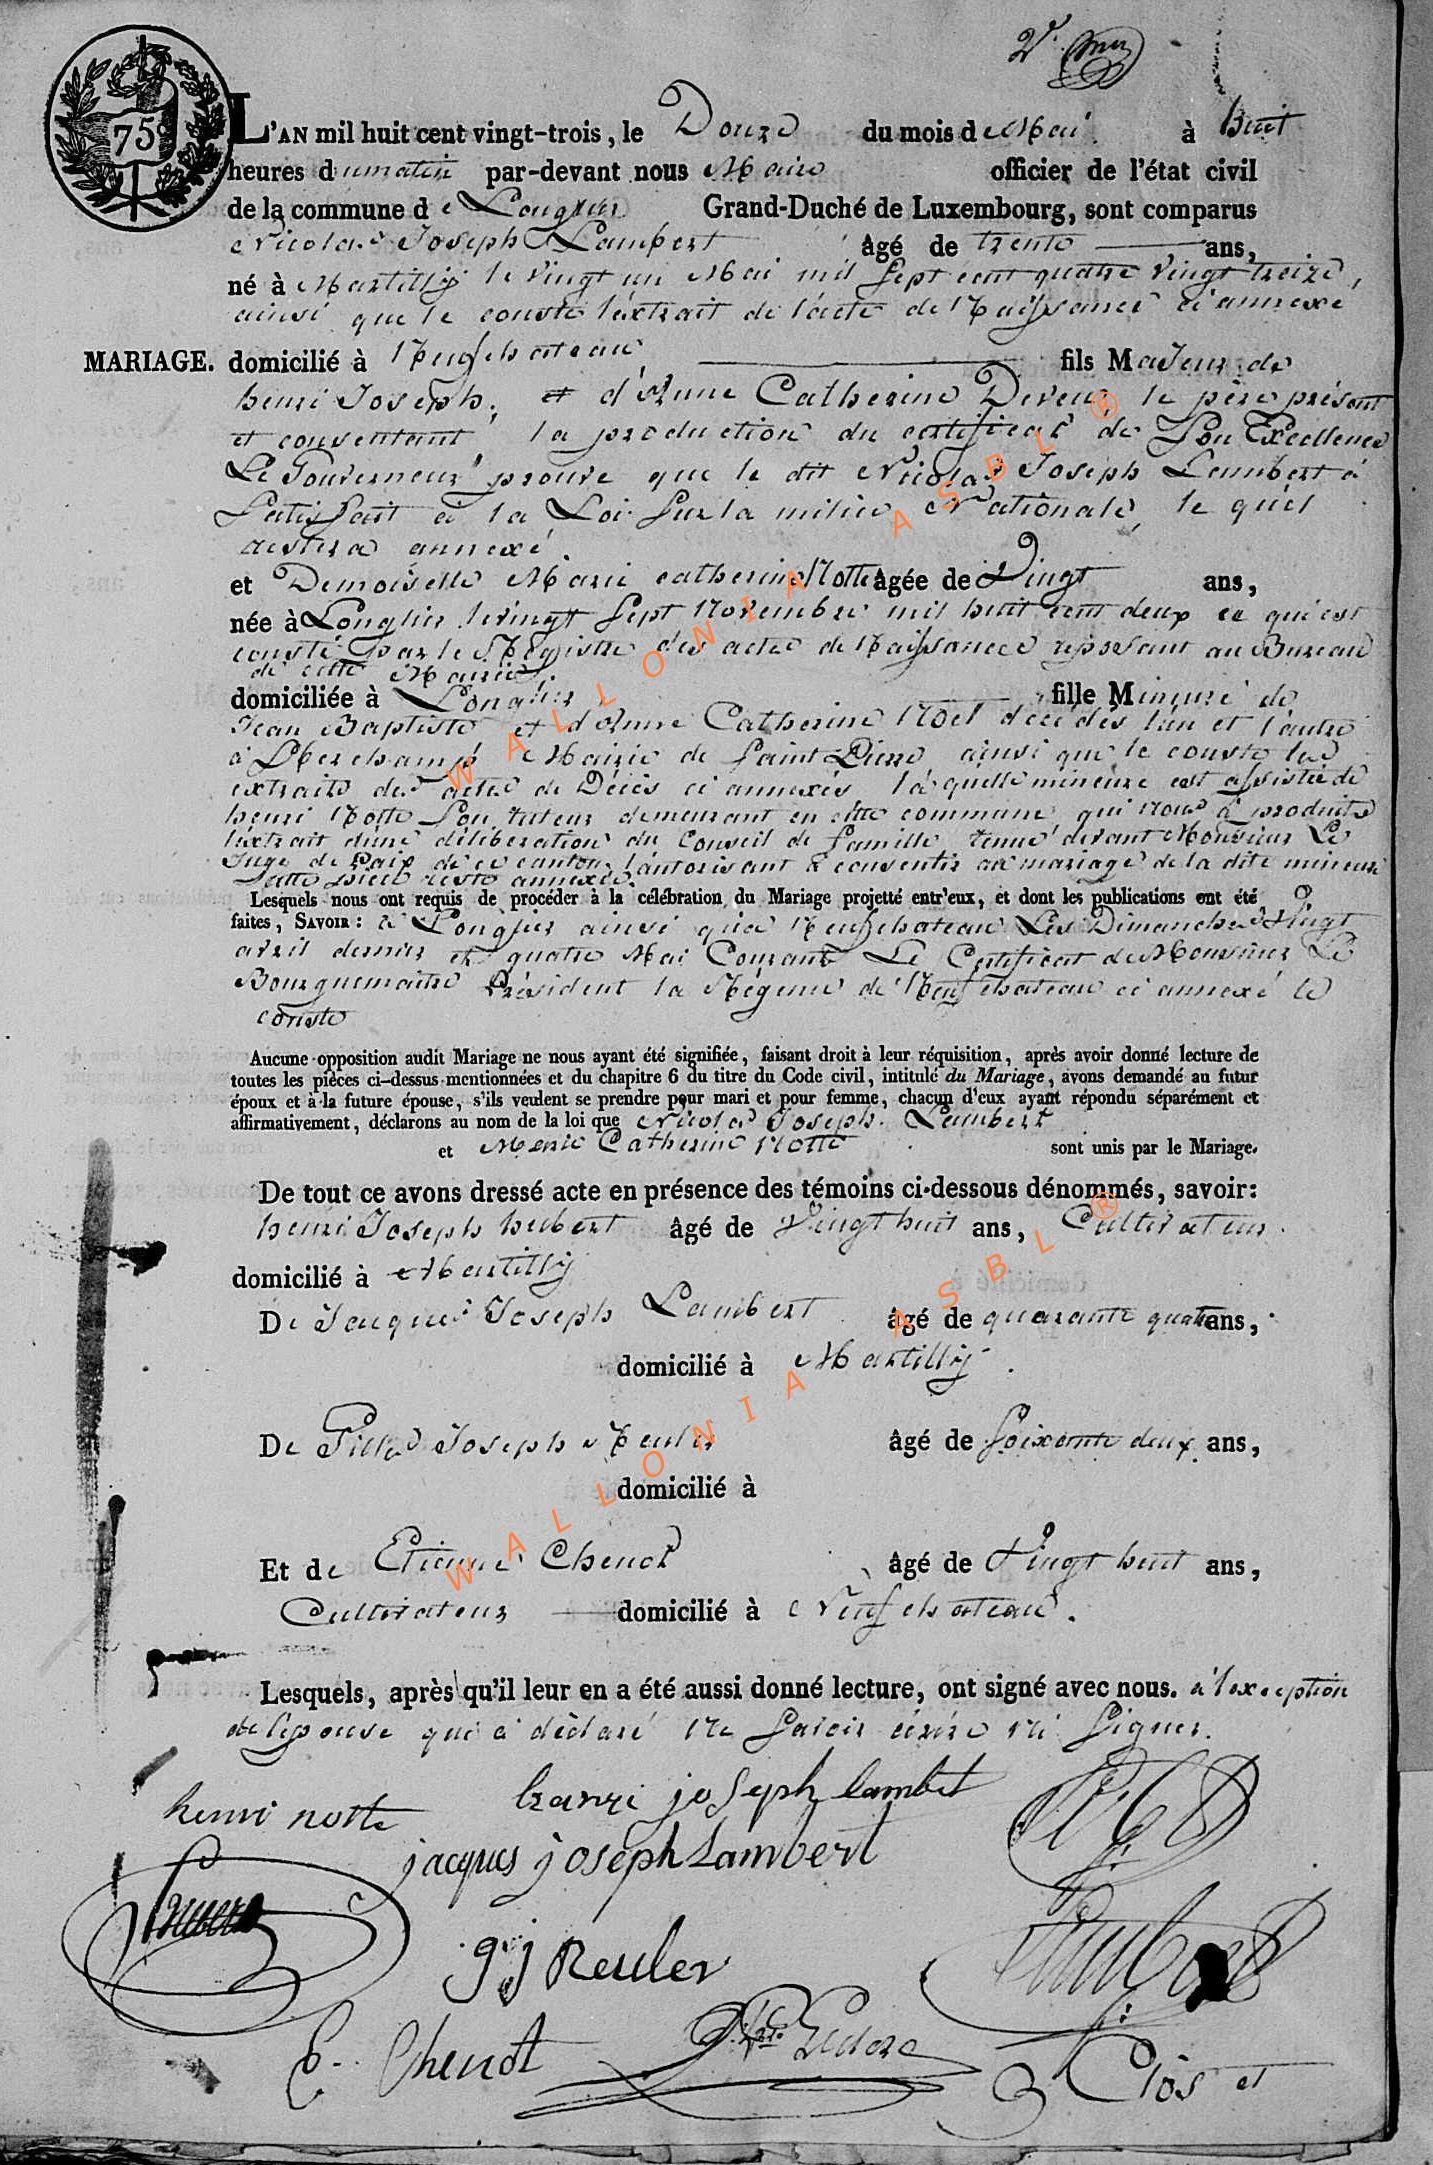 2e
75c
L'AN mil huit cent vingt-trois, le Douze du mois de Mai à huit
heures du matin par-devant nous Maire officier de l'état civil
de la commune de Longlier Grand-Duché de Luxembourg, sont comparus
Nicolas Joseph Lambert âgé de trente ans,
né à Martilly le vingt un Mai mil sept cent quatre vingt treize,
ainsi que le conste l'extrait de l'acte de Naissance ci annexé,
MARIAGE. domicilié à Neufchateau fils Majeur de
henri Joseph, et d'Anne Catherine Le père présent
et consentant, la production du certificat de Son Excellence
Le Gouverneur prouve que le dit Nicolas Joseph Lambert à
Satisfait à la Loi Sur la milice Nationale, le quel
restera annexé.
et Demoiselle Marie catherine Notte âgée de Vingt ans,
née à Longlier le vingt Sept Novembre mil huit cent deux ce qui est
consté par le Régistre des actes de Naissances reposant au Bureau
de cette Mairie.
domiciliée à Longlier fille Mineure de
Jean Baptiste et d'Anne Catherine Noel décédés l'un et l'autre
à Mairie de Saint Pierre ainsi que le conste les
extraits des actes de Décès ci annexés, la quelle mineure est assistée de
henri Notte Son tuteur demeurant en cette commune qui nous à produits
l'extrait d'une délibération du Conseil de famille tenue devant Monsieur Le
Juge de Paix de ce canton, l'autorisant à consentir au mariage de la dite mineure
cette pièce reste annexée.
Lesquels nous ont requis de procéder à la célébration du Mariage projetté entr'eux, et dont les publications ont été
faites, SAVOIR : à Longlier ainsi qu'à Neufchateau Les Dimanches Vingt
avril dernier et quatre Mai Courant Le Certificat de Monsieur Le
Bourguemaitre Président la Régence de Neufchateau ci annexé le
conste
Aucune opposition audit Mariage ne nous ayant été signifiée, faisant droit à leur réquisition, après avoir donné lecture de
toutes les pièces ci-dessus mentionnées et du chapitre 6 du titre du Code civil, intitulé du Mariage, avons demandé au futur
époux et à la future épouse, s'ils veulent se prendre pour mari et pour femme, chacun d'eux ayant répondu séparément et
affirmativement, déclarons au nom de la loi que Nicolas Joseph Lambert
et Marie Catherine Notte sont unis par le Mariage.
De tout ce avons dressé acte en présence des témoins ci-dessous dénommés, savoir:
henri Joseph hubert âgé de Vingt huit ans, Cultivateur
domicilié à Martilly
De Jacques Joseph Lambert âgé de quarante quatre ans,
domicilié à Martilly.
De Joseph Reuler âgé de Soixante deux ans,
domicilié à
Et de Etienne Chenot âgé de Vingt huit ans,
Cultivateur domicilié à Neufchateau.
Lesquels, après qu'il leur en a été aussi donné lecture, ont signé avec nous. à l'exception
de l'épouse qui à déclaré ne Savoir écrire ni Signer.
henri notte
joseph lambert
jacques joseph Lambert
g j Reuler
E. Chenot
WALLONIA ASBL ®
WALLONIA ASBL ®